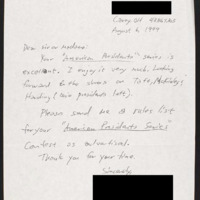 August 6, 1999
Dear Sir or Madame:
Your "American Presidents" series is
excellent. I enjoy it very much. Looking
forward to the shows on Taft,
Harding (Ohio presidents
Please send me a rules list
for your "American Presidents Series"
Contest as advertised.
Thank you for your time.
Sincerely,